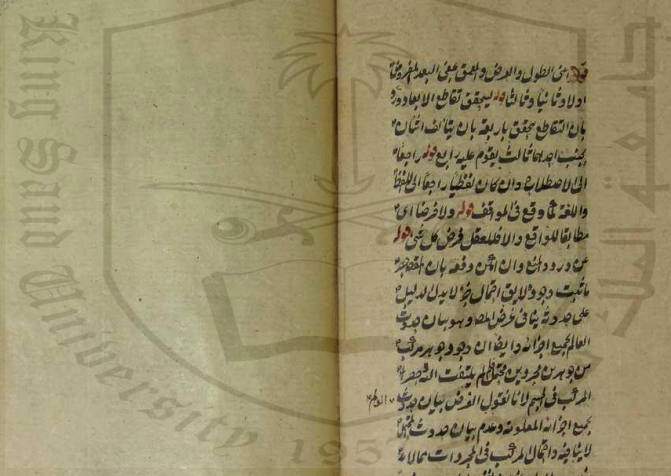 قوله اعنى الطول والعرض والعمق اعنى البعد المفروض
اولا وثانيا وثالثا قوله ليتحقق تقاطع الابعاد ورد
بان التقاطع يتحقق باربعة بان يتألف اثنان
بجنب احدهما ثالث يقوم عليه رابع قوله راجعا
الى الاصطلاح وان كان لفظيا راجعا الى اللفظ
واللغة كما وقع فى المواقف قوله ولا فرضا اى
مطابقا للواقع والا فللعقل فرض كل شئ قوله
عن ورود المنع وان امكن دفعه بان المقصود
ما ثبت وجوده لا يق احتمال جزء لا يدل الدليل
على حدوثه ينافى غرض المصنف وهو بيان حدوث
العالم بجميع اجزائه وايضا ان وجود جوهر مركب
من جوهرين مجردين محتمل فلم يلتفت اليه وحصر
المركب فى الجسم لانا نقول الغرض بيان حدوث
جميع اجزائه المعلومة وعدم بيان حدوث المحتمل
لا ينافيه واحتمال المركب فى المجردات مما لا
King Saud University 1957
جامعة الملك